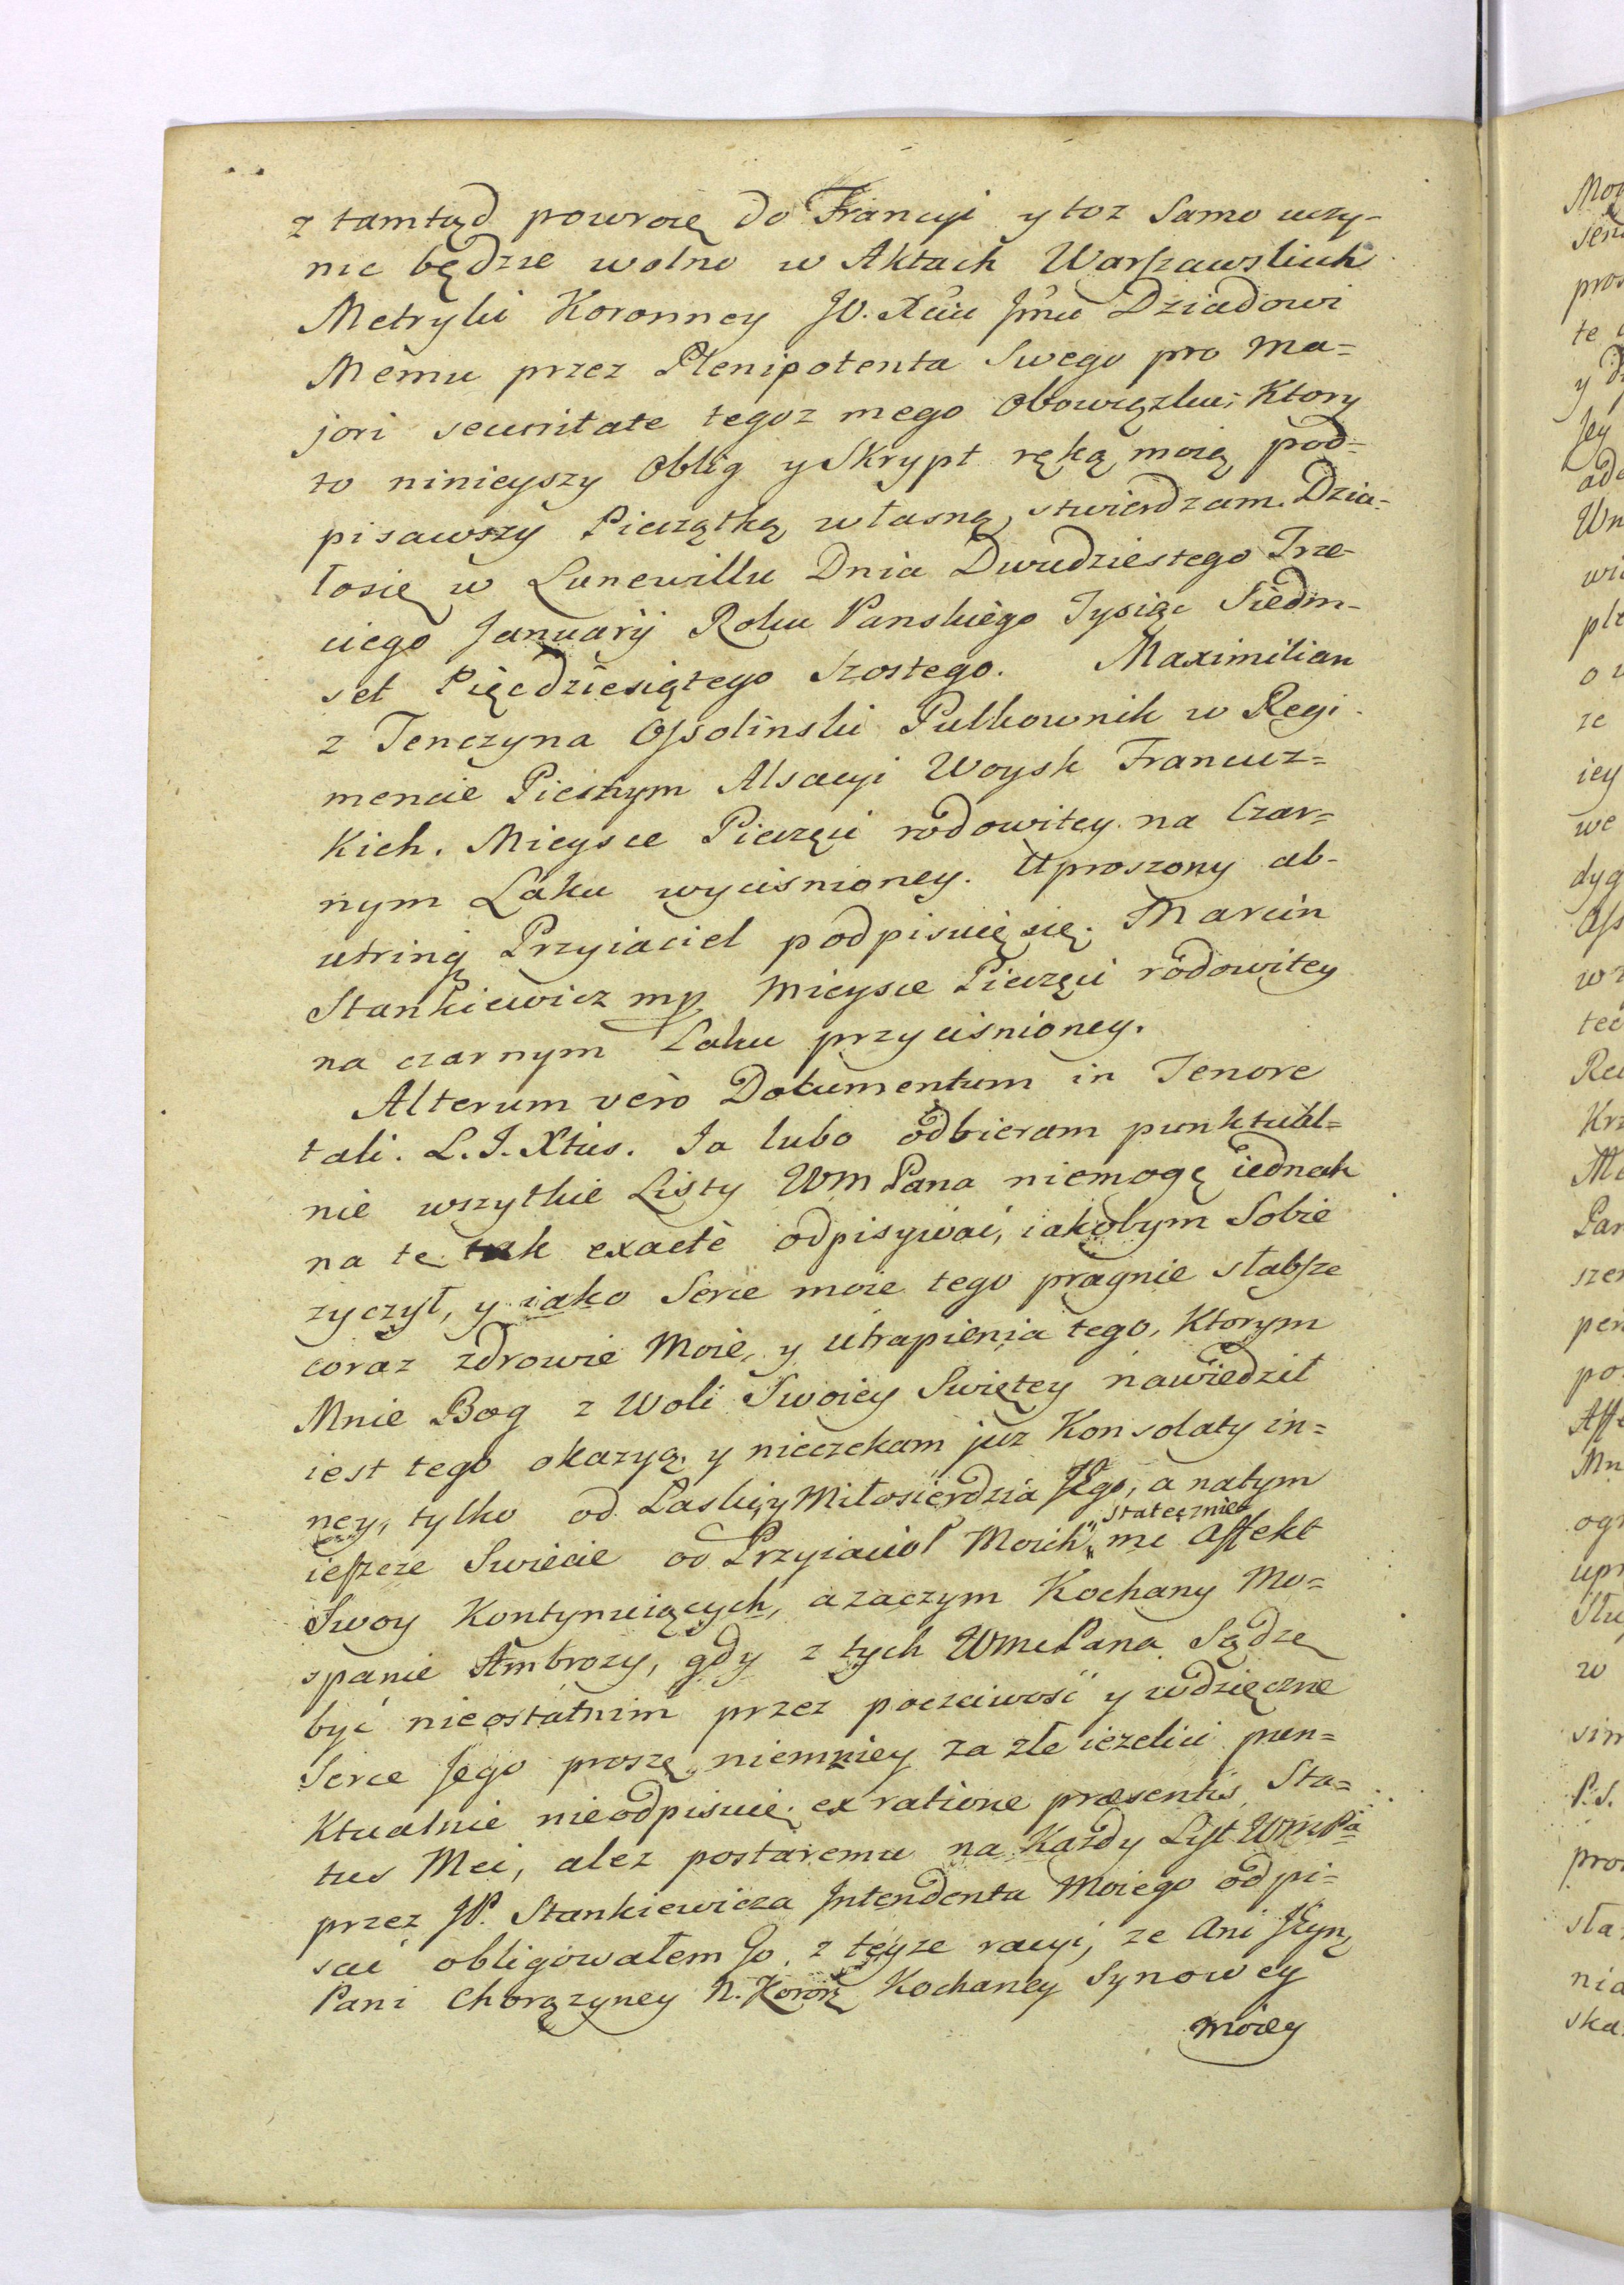 z tamtąd powrocę do Francyi y toz Samo uczy-
nic będzie wolno w Aktach Warszawskich
Metryki Koronney JO. Xciu Jmci Dziadowi
Memu przez Plenipotenta Swego pro Ma=
jori securitate tegoz mego Obowiązku; Ktory
to ninieyszy Oblig y Skrypt ręką moią pod=
pisawszy Pieczątką własną stwierdzam. Dzia-
łosię w Lunewillu Dnia Dwudziestego Trze-
ciego Januarij Roku Panskiego Tysiąc Siedm-
set Pięcdziesiątego Szostego. Maximilian
z Tenczyna Ossolinski Pulkownik w Regi-
mencie Pieszym Alsacyi Woysk Francuz=
Kich. Mieysce Pieczęci rodowitey na Czar=
nym Laku wycisnioney. Uproszony ab-
utrinq Przyiaciel podpisuię się. Marcin
Stankiewicz mp Mieysce Pieczęci rodowitey
na czarnym Laku przycisnioney.
Alterum verò Dokumentum in Tenore
tali. L. J. Xtus. Ja lubo odbieram punktual=
nie wszytkie Listy WM Pana niemogę iednak
na te tak exactè odpisywać, iakobym Sobie
zyczył, y iako Serce moie tego pragnie słabsze
coraz zdrowie Moie, y utrapienia tego, Ktorym
Mnie Bog z Woli Swoiey Swiętey nawiedził
iest tego okazyą. y nieczekam juz Konsolaty in=
ney, tylko od Laski y Miłosierdzia Jego, a natym
ieszcze Swiecie od Przyiaciol Moich statecznie mi Affekt
Swoy Kontynuiących, a zaczym Kochany Mo=
spanie Ambrozy, gdy z tych WmcPana Sądzę
być nieostatnim przez poczciwość y wdzięczne
Serce Jego proszę niemniey za złe iezelici pun=
Ktualnie nieodpisuię. ex ratione præsentis Sta=
tus Mei, alez postaremu na Kazdy List WmPa
przez JP. Stankiewicza Intendenta Moiego odpi=
sać obligowałem Go. z teyze racyi, ze Ani
Pani Chorązyney N. Koron Kochaney Synowey
moiey